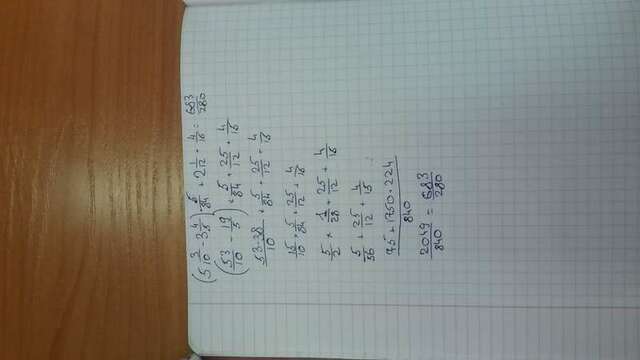 (5 3/10 - 3 4/5) · 5/84 + 2 1/12 + 4/15 = 683/280
(53/10 - 19/5) · 5/84 + 25/12 + 4/15
53-38/10 · 5/84 + 25/12 + 4/15
15/10 · 5/84 + 25/12 + 4/15
5/2 × 1/28 + 25/12 + 4/15
5/56 + 25/12 + 4/15
75 + 1750 + 224/840
2049/840 = 683/280